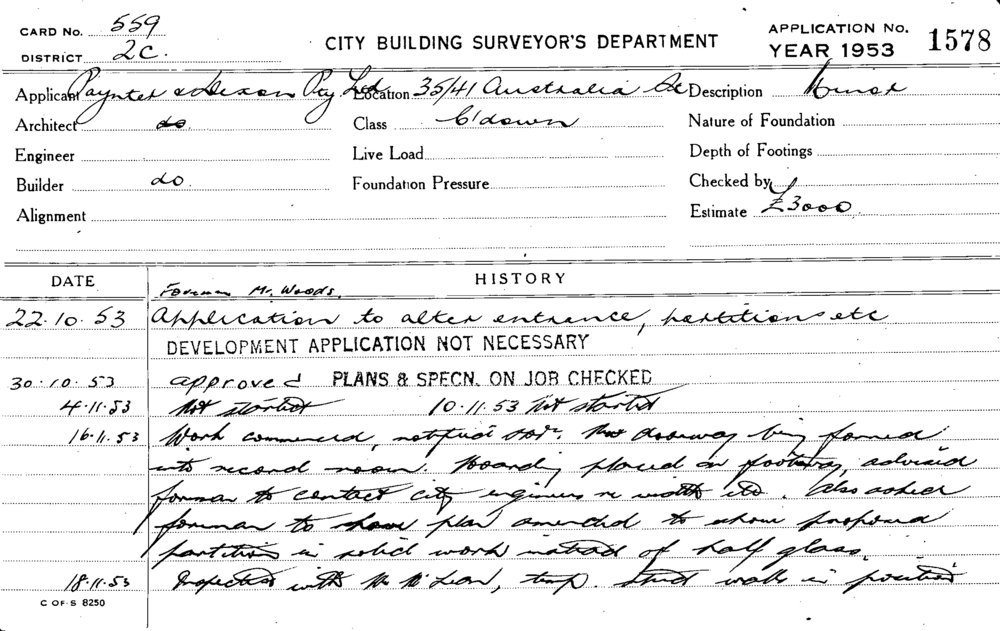 CARD No. 559
DISTRICT 2C.
CITY BUILDING SURVEYOR'S DEPARTMENT
APPLICATION No.
YEAR 1953 1578
Applicant Paynter & Dixon Pty Ltd Location 35/41 Australia St Description Minor
Architect do Class C'down Nature of Foundation
Engineer Live Load Depth of Footings
Builder do Foundation Pressure Checked by
Alignment Estimate £3000
DATE HISTORY
Foreman Mr. Woods.
22.10.53 Application to alter entrance, partitions etc
DEVELOPMENT APPLICATION NOT NECESSARY
30.10.53 approved PLANS & SPECN. ON JOB CHECKED
4.11.53 Not started 10.11.53 Not started
16.11.53 Work commenced, doorway being formed
into record room. Hoarding placed on footway, advised
forman to contact city engineers re width etc. Also asked
foreman to have plan amended to show proposed
partitions in solid work instead of half glass.
18.11.53 Inspected with Mr McLean, temp. stud wall in position
C OF S 8250